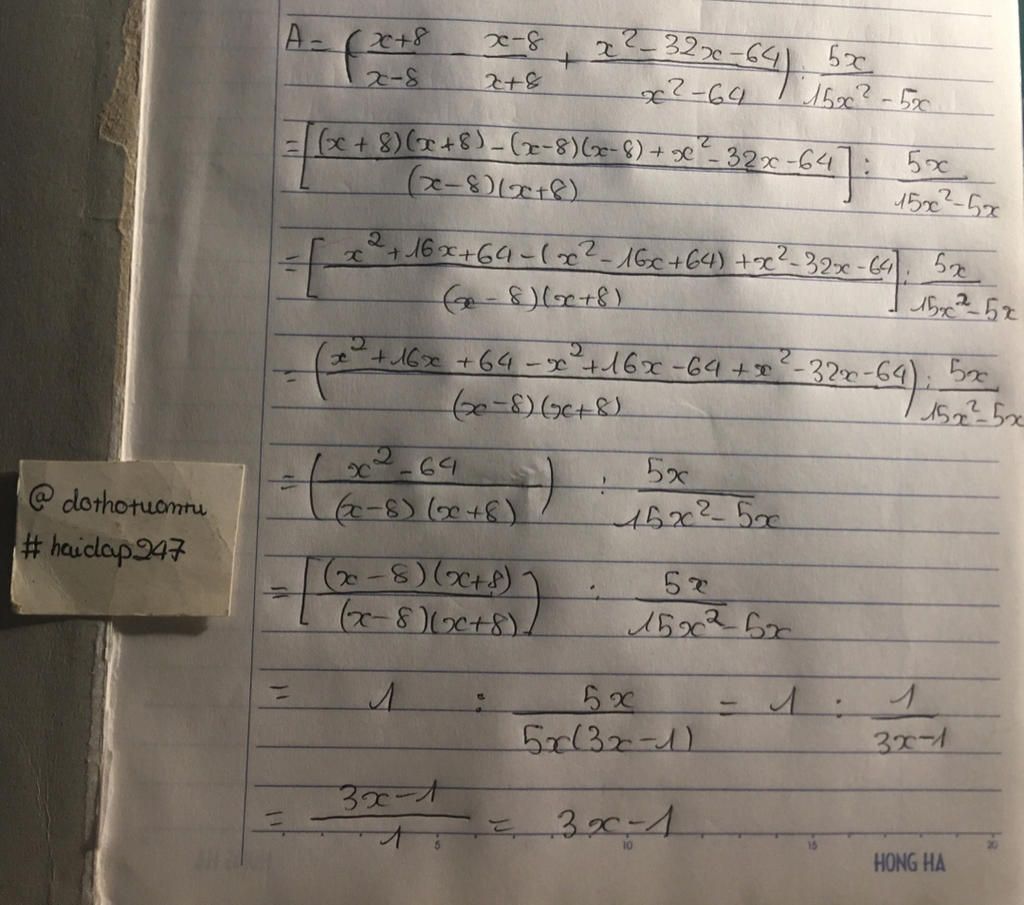 A = ( (x+8)/(x-8) - (x-8)/(x+8) + (x² - 32x - 64)/(x² - 64) ) : 5x/(15x² - 5x)
= [ ((x + 8)(x + 8) - (x - 8)(x - 8) + x² - 32x - 64)/((x - 8)(x + 8)) ] : 5x/(15x² - 5x)
= [ (x² + 16x + 64 - (x² - 16x + 64) + x² - 32x - 64)/((x - 8)(x + 8)) ] : 5x/(15x² - 5x)
= ( (x² + 16x + 64 - x² + 16x - 64 + x² - 32x - 64)/((x - 8)(x + 8)) ) : 5x/(15x² - 5x)
= ( (x² - 64)/((x - 8)(x + 8)) ) : 5x/(15x² - 5x)
@ dothotuantu
# haidap247
= [ ((x - 8)(x + 8))/((x - 8)(x + 8)) ] : 5x/(15x² - 5x)
= 1 : 5x/(5x(3x - 1)) = 1 : 1/(3x - 1)
= (3x - 1)/1 = 3x - 1
5 10 15 20
HONG HA